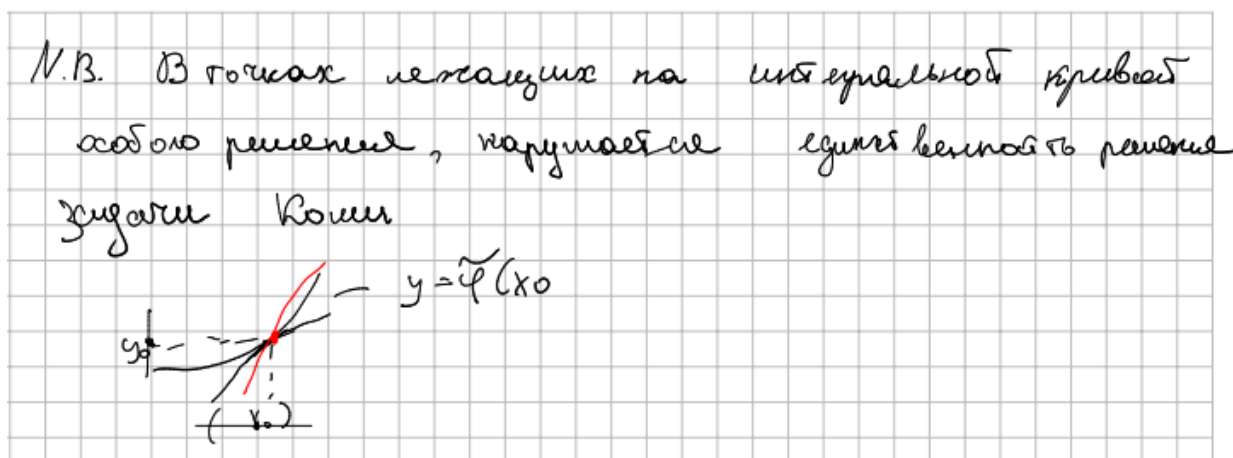 N.B. В точках лежащих на интегральной кривой
особого решения, нарушается единственность решения
задачи Коши
y = φ̃(x0
y0
( x0 )